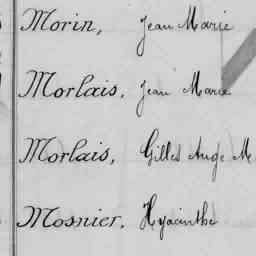 Morin, Jean Marie
Morlais, Jean Marie
Morlais, Gilles Ange M
Mosnier, Hyacinthe